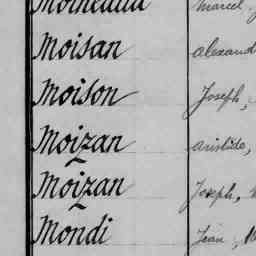 Moineaud Marcel
Moisan Alexand
Moison Joseph,
Moizan Aristide,
Moizan Joseph,
Mondi Jean,